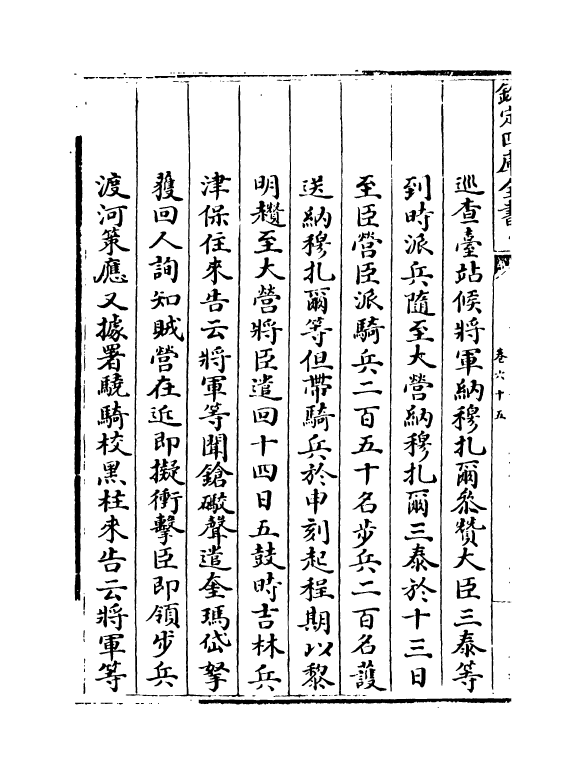 欽定四庫全書
卷六十五
巡查臺站候將軍納穆扎爾叅贊大臣三泰等
到時派兵隨至大營納穆扎爾三泰於十三日
至臣營臣派騎兵二百五十名步兵二百名護
送納穆扎爾等但帶騎兵於申刻起程期以黎
明趲至大營將臣遣回十四日五鼓時吉林兵
津保住來告云將軍等聞鎗礮聲遣奎瑪岱拏
獲回人詢知賊營在近即擬衝擊臣即領步兵
渡河策應又據署驍騎校黑柱來告云將軍等